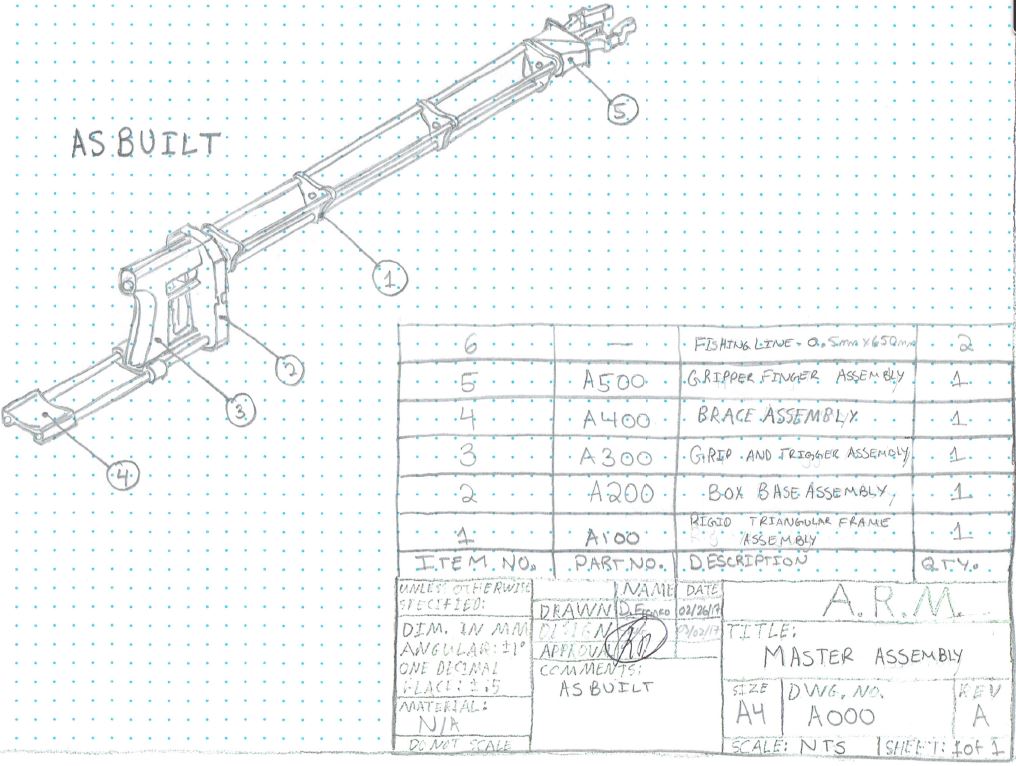 AS BUILT
5
1
2
3
4
6 — FISHING LINE - 0.5mm x 650mm 2
5 A500 GRIPPER FINGER ASSEMBLY 1
4 A400 BRACE ASSEMBLY 1
3 A300 GRIP AND TRIGGER ASSEMBLY 1
2 A200 BOX BASE ASSEMBLY 1
1 A100 RIGID TRIANGULAR FRAME ASSEMBLY 1
ITEM NO. PART NO. DESCRIPTION QTY.
UNLESS OTHERWISE
SPECIFIED:
DIM. IN MM
ANGULAR: ±1°
ONE DECIMAL
PLACE: ±.5
MATERIAL:
N/A
DO NOT SCALE
NAME DATE
DRAWN 02/26/17
DESIGN
APPROVAL
COMMENTS:
AS BUILT
A.R.M.
TITLE:
MASTER ASSEMBLY
SIZE DWG. NO. REV
A4 A000 A
SCALE: NTS SHEET: 1 of 1